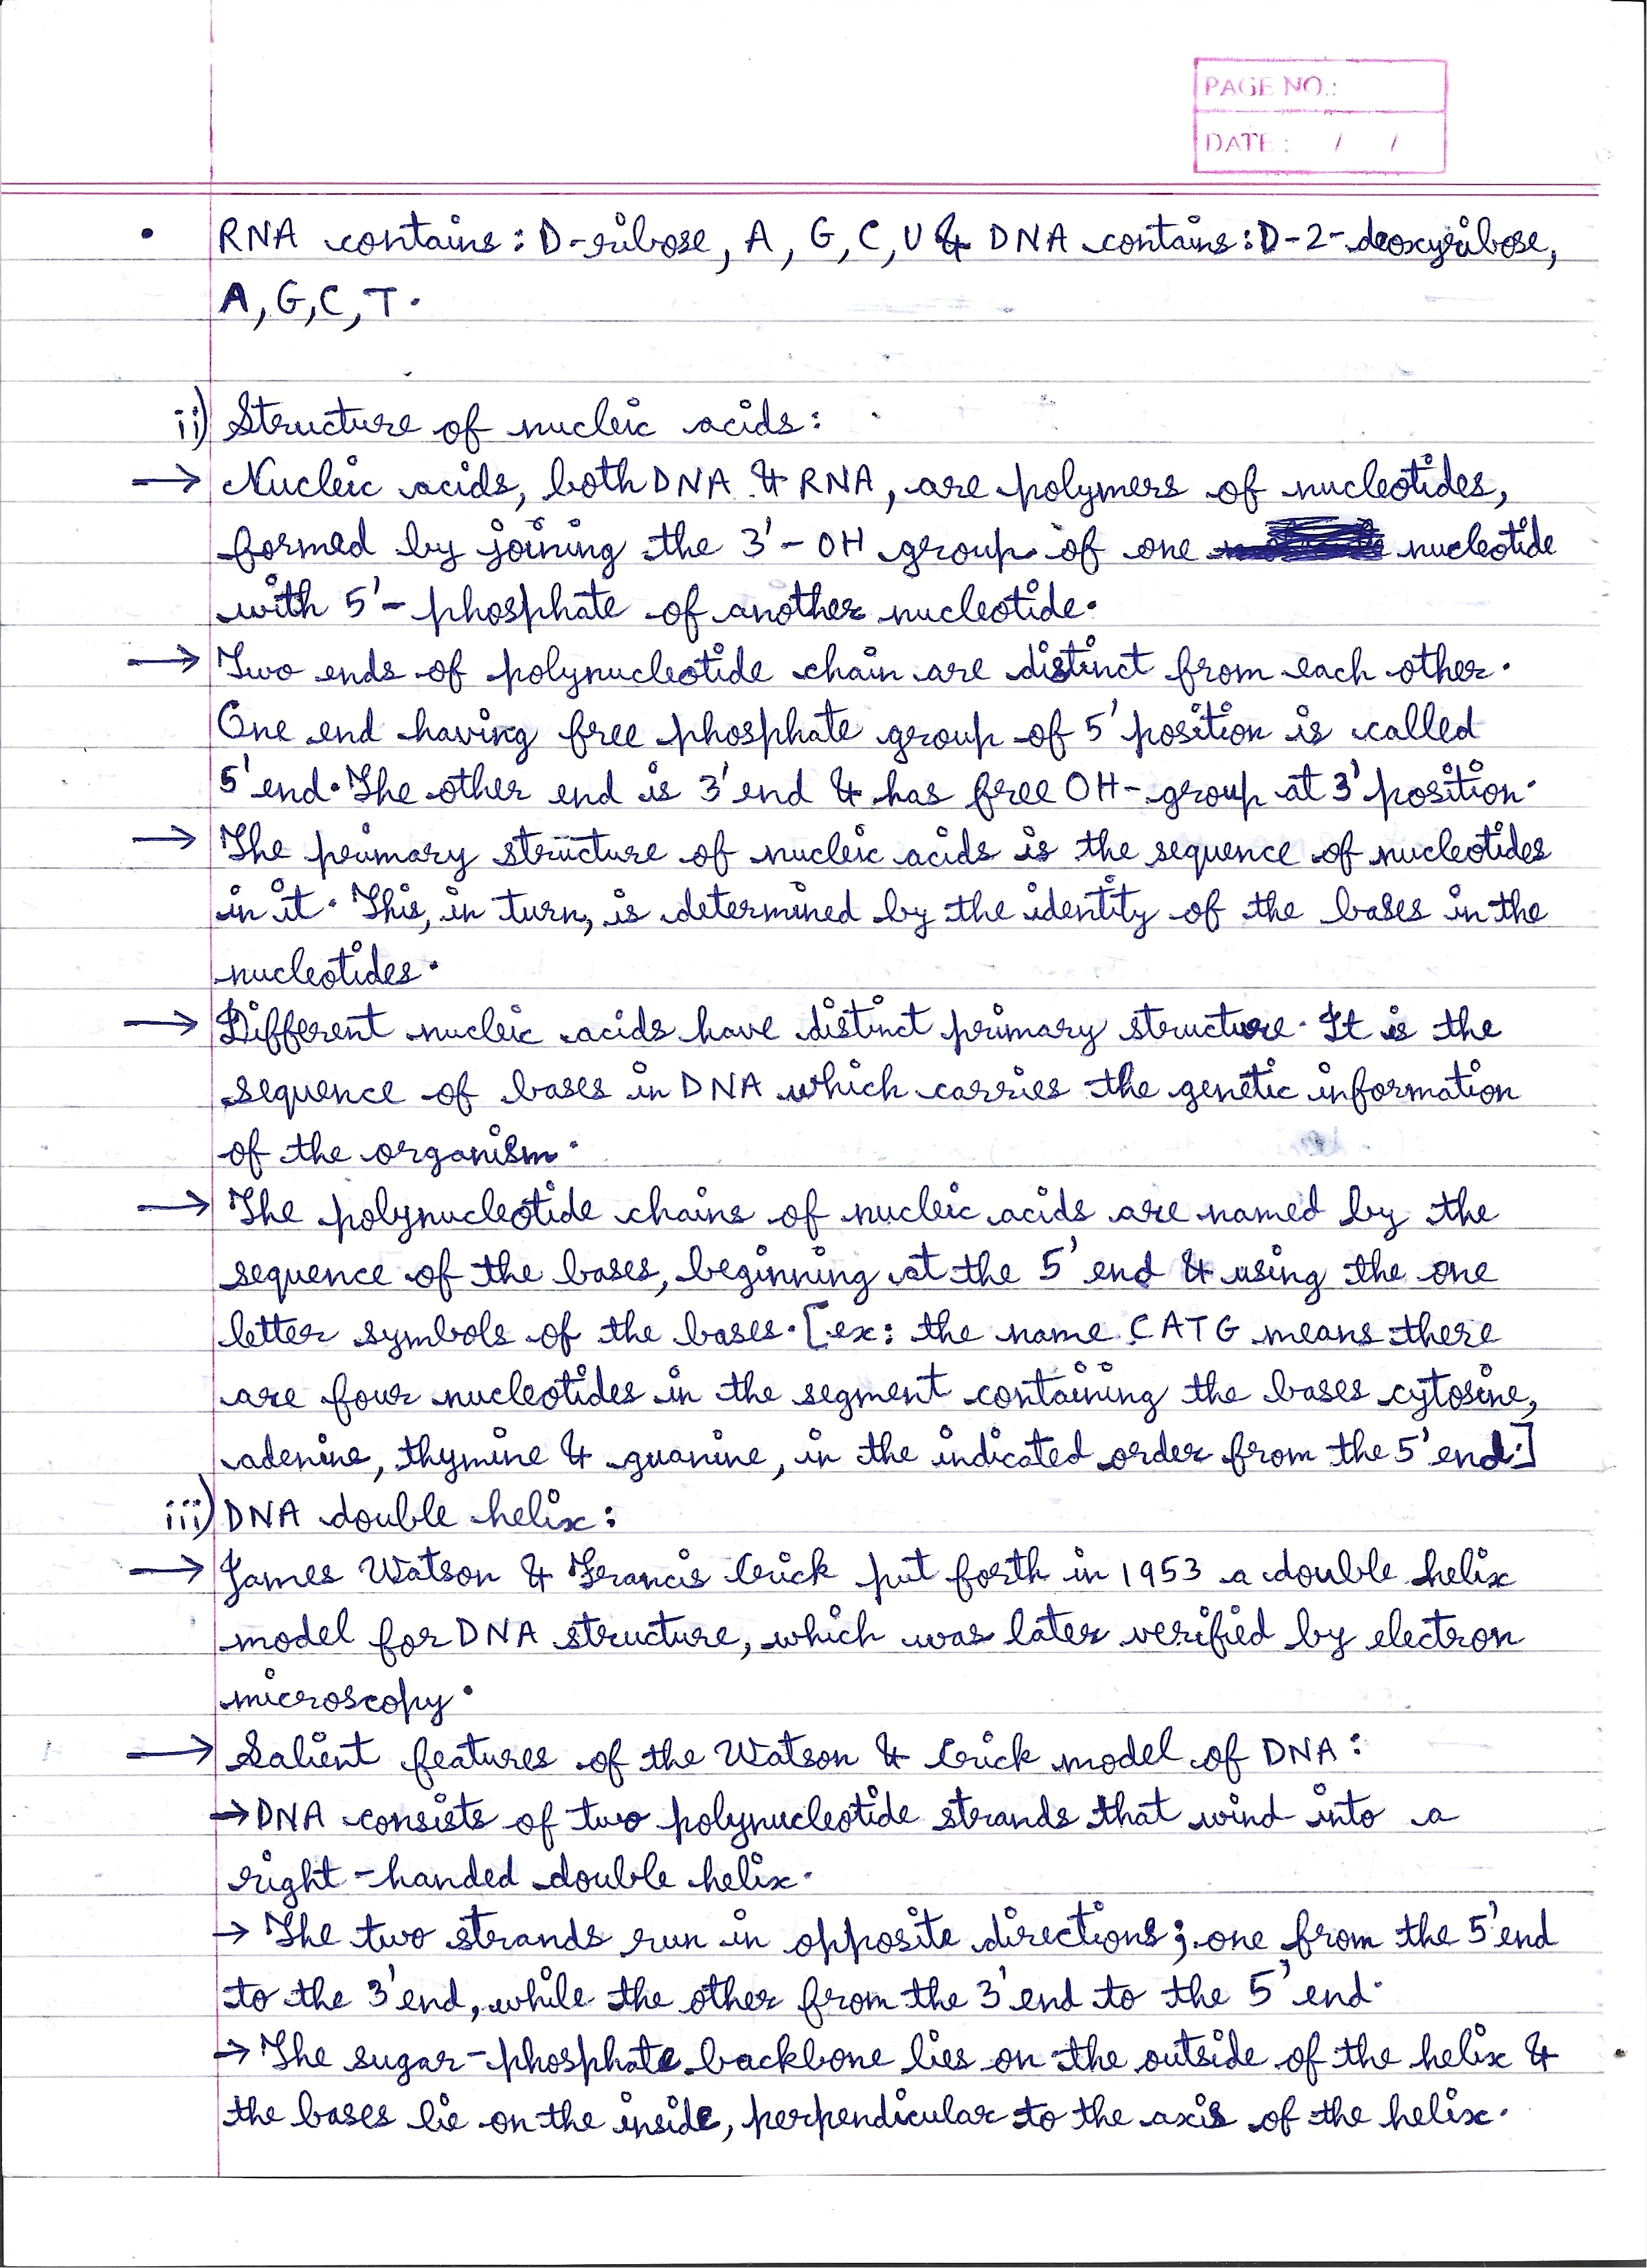 PAGE NO.:
DATE: / /
• RNA contains: D-ribose, A, G, C, U & DNA contains: D-2-deoxyribose,
A, G, C, T.
ii) Structure of nucleic acids:
→ Nucleic acids, both DNA & RNA, are polymers of nucleotides,
formed by joining the 3'-OH group of one nucleotide
with 5'-phosphate of another nucleotide.
→ Two ends of polynucleotide chain are distinct from each other.
One end having free phosphate group of 5' position is called
5' end. The other end is 3' end & has free OH- group at 3' position.
→ The primary structure of nucleic acids is the sequence of nucleotides
in it. This, in turn, is determined by the identity of the bases in the
nucleotides.
→ Different nucleic acids have distinct primary structure. It is the
sequence of bases in DNA which carries the genetic information
of the organism.
→ The polynucleotide chains of nucleic acids are named by the
sequence of the bases, beginning at the 5' end & using the one
letter symbols of the bases. [ex: the name CATG means there
are four nucleotides in the segment containing the bases cytosine,
adenine, thymine & guanine, in the indicated order from the 5' end.]
iii) DNA double helix:
→ James Watson & Francis Crick put forth in 1953 a double helix
model for DNA structure, which was later verified by electron
microscopy.
→ Salient features of the Watson & Crick model of DNA:
→ DNA consists of two polynucleotide strands that wind into a
right-handed double helix.
→ The two strands run in opposite directions; one from the 5' end
to the 3' end, while the other from the 3' end to the 5' end.
→ The sugar-phosphate backbone lies on the outside of the helix &
the bases lie on the inside, perpendicular to the axis of the helix.